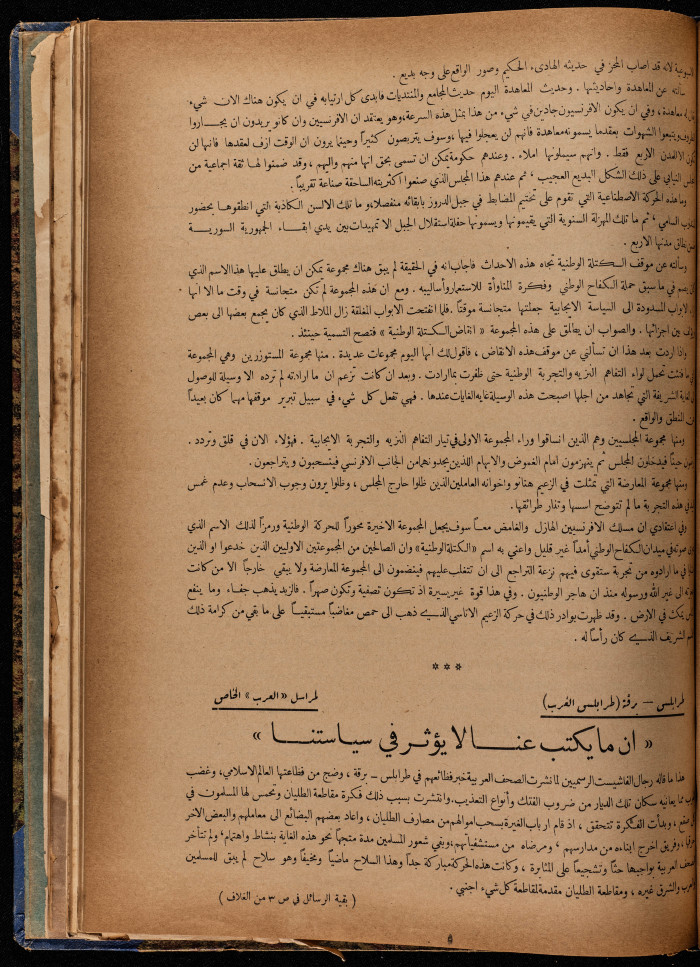 لانه قد اصاب المحز في حديثه الهادىء الحكيم وصور الواقع على وجه بديع .
سألته عن المعاهدة واحاديثها . وحديث المعاهدة اليوم حديث المجامع والمنتديات فابدى كل ارتيابه في ان يكون هناك الان شيء
معاهدة ، وفي ان يكون الافرنسيون جادين في شيء من هذا بمثل هذه السرعة ، وهو يعتقد ان الافرنسيين وان كانو يريدون ان يجـــاروا
ويتبعوا الشهوات بعقد ما يسمونه معاهدة فانهم لن يعجلوا فيها ، وسوف يتربصون كثيراً وحينما يرون ان الوقت ازف لعقدها فانها لن
الا للمدن الاربع فقط . وانهم سيملونها املاء . وعندهم حكومة يمكن ان تسمى بحق انها منهم واليهم ، وقد ضمنوا لهـا ثقة اجماعية من
النيابي على ذلك الشكل البديع العجيب ، ثم عندهم هذا المجلس الذي صنعوا اكثريته الساحقة صناعة تقريباً .
وما هذه الحركة الاصطناعية التي تقوم على تختيم المضابط في جبل الدروز بابقائه منفصلا ، و ما تلك الالسن الكاذبة التي انطقوها بحضور
السامي ، ثم ما تلك المهزلة السنوية التي يقيمونها ويسمونها حفلة استقلال الجبل الا تمهيدات بين يدي ابقـــاء الجمهورية الســـورية
مدنها الاربع .
وسألته عن موقف الكـتلة الوطنية تجاه هذه الاحداث فاجاب انه في الحقيقة لم يبق هناك مجموعة يمكن ان يطلق عليها هذا الاسم الذي
في ما سبق حملة الكفاح الوطني وفكرة المناوأة للاستعمار وأساليبه . ومع ان هذه المجموعة لم تكن متجانسة في وقت ما الا انها
الابواب المسدودة الى السياسة الايجابية جعلتها متجانسة موقتاً . فلما انفتحت الابواب المغلقة زال الملاط الذي كان يجمع بعضها الى بعض
بين اجزائها . والصواب ان يطلق على هذه المجموعة « انقاض الكـتلة الوطنية » فتصح التسمية حينئذ .
واذا اردت بعد هذا ان تسألني عن موقف هذه الانقاض ، فاقول لك انها اليوم مجموعات عديدة . منها مجموعة المستوزرين وهي المجموعة
ما فتئت تحمل لواء التفاهم النزيه والتجربة الوطنية حتى ظفرت بما ارادت . وبعد ان كانت تزعم ان ما ارادته لم ترده الا وسيلة للوصول
الشريفة التي تجاهد من اجلها اصبحت هذه الوسيلة غاية الغايات عندها . فهي تفعل كل شيء في سبيل تبرير موقفها مهما كان بعيداً
المنطق والواقع .
ومنها مجموعة المجلسيين وهم الذين انساقوا وراء المجموعة الاولى في تيار التفاهم النزيه والتجربة الايجابية . فهؤلاء الان في قلق وتردد .
حيناً فيدخلون المجلس ثم ينهزمون امام الغموض والابهام اللذين يجدونهما من الجانب الافرنسي فينسحبون ويتراجعون .
ومنها مجموعة المعارضة التي تمثلت في الزعيم هنانو واخوانه العاملين الذين ظلوا خارج المجلس ، وظلوا يرون وجوب الانسحاب وعدم غمس
في هذه التجربة ما لم تتوضح اسسها وتنار طرائقها .
وفي اعتقادي ان مسلك الافرنسيين الهازل والغامض معـاً سوف يجعل المجموعة الاخيرة محوراً للحركة الوطنية ورمزاً لذلك الاسم الذي
صوته في ميدان الكفاح الوطني أمداً غير قليل واعني به اسم « الكتلة الوطنية » وان الصالحين من المجموعتين الاوليين الذين خدعوا او الذين
في ما ارادوه من تجربة ستقوى فيهم نزعة التراجع الى ان تتغلب عليهم فينضمون الى المجموعة المعارضة ولا يبقى خارجاً الا من كانت
الى غير الله ورسوله منذ ان هاجر الوطنيون . وفي هذا قوة غير يسيرة اذ تكون تصفية وتكون صهراً . فالزبد يذهب جفـاء وما ينفع
يمكث في الارض . وقد ظهرت بوادر ذلك في حركة الزعيم الاتاسي الذي ذهب الى حمص مغاضباً مستبقيـاً على ما بقي من كرامة ذلك
الشريف الذي كان رأساً له .
***
طرابلس – برقة ( طرابلس الغرب )
لمراسل « العرب » الخاص
« ان ما يكتب عنـــا لا يؤثر في سياستنـــا »
هذا ما قاله رجال الفاشيست الرسميين لما نشرت الصحف العربية خبر فظائعهم في طرابلس – برقة ، وضج من فظاعتها العالم الاسلامي، وغضب
مما يعانيه سكان تلك الديار من ضروب الفتك وأنواع التعذيب. وانتشرت بسبب ذلك فكرة مقاطعة الطليان وتحمس لها المسلمون في
، وبدأت الفكرة تتحقق ، اذ قام ارباب الغيرة بسحب اموالهم من مصارف الطليان ، واعاد بعضهم البضائع الى معاملهم والبعض الاخر
، وفريق اخرج ابناءه من مدارسهم ، ومرضاه من مستشفياتهم، وبقي شعور المسلمين مدة متجهاً نحو هذه الغاية بنشاط واهتمام ، ولم تتأخر
العربية بواجبها حثاً وتشجيعاً على المثابرة ، وكانت هذه الحركة مباركة جداً وهذا السلاح ماضياً ومخيفاً وهو سلاح لم يبق للمسلمين
والعرب والشرق غيره ، ومقاطعة الطليان مقدمة لمقاطعة كل شيء اجنبي .
( بقية الرسائل في ص ٣ من الغلاف )